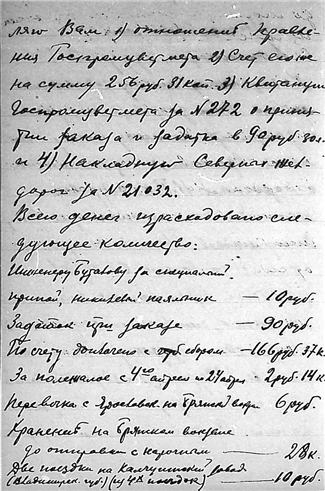 ляю Вам 1) отношения Правле-
ния Госпромцветмета 2) Счет его же
на сумму 256 руб. 31 коп. 3) Квитанции
Госпромцветмета за N 272 о приня-
тии заказа и задатка в 90 руб. зол.
и 4) Накладную Северных жел.
дорог за N 21032.
Всего денег израсходовано сле-
дующее количество:
Инженеру Бутакову за специальный
припой, никелевый паяльник — 10 руб.
Задаток при заказе — 90 руб.
По счету доплочено с герб. сбором — 166 руб. 37 к.
За полежалое с 4го апреля по 24 апр. — 2 руб. 14 к.
Перевозка с Ярославск. на Брянский вокз. 6 руб.
Хранение на Брянском вокзале
до отправки с нарочным — 28 к.
Две поездки на Кольчугинский завод
(Владимирск. губ.) (из 4х поездок) — 10 руб.